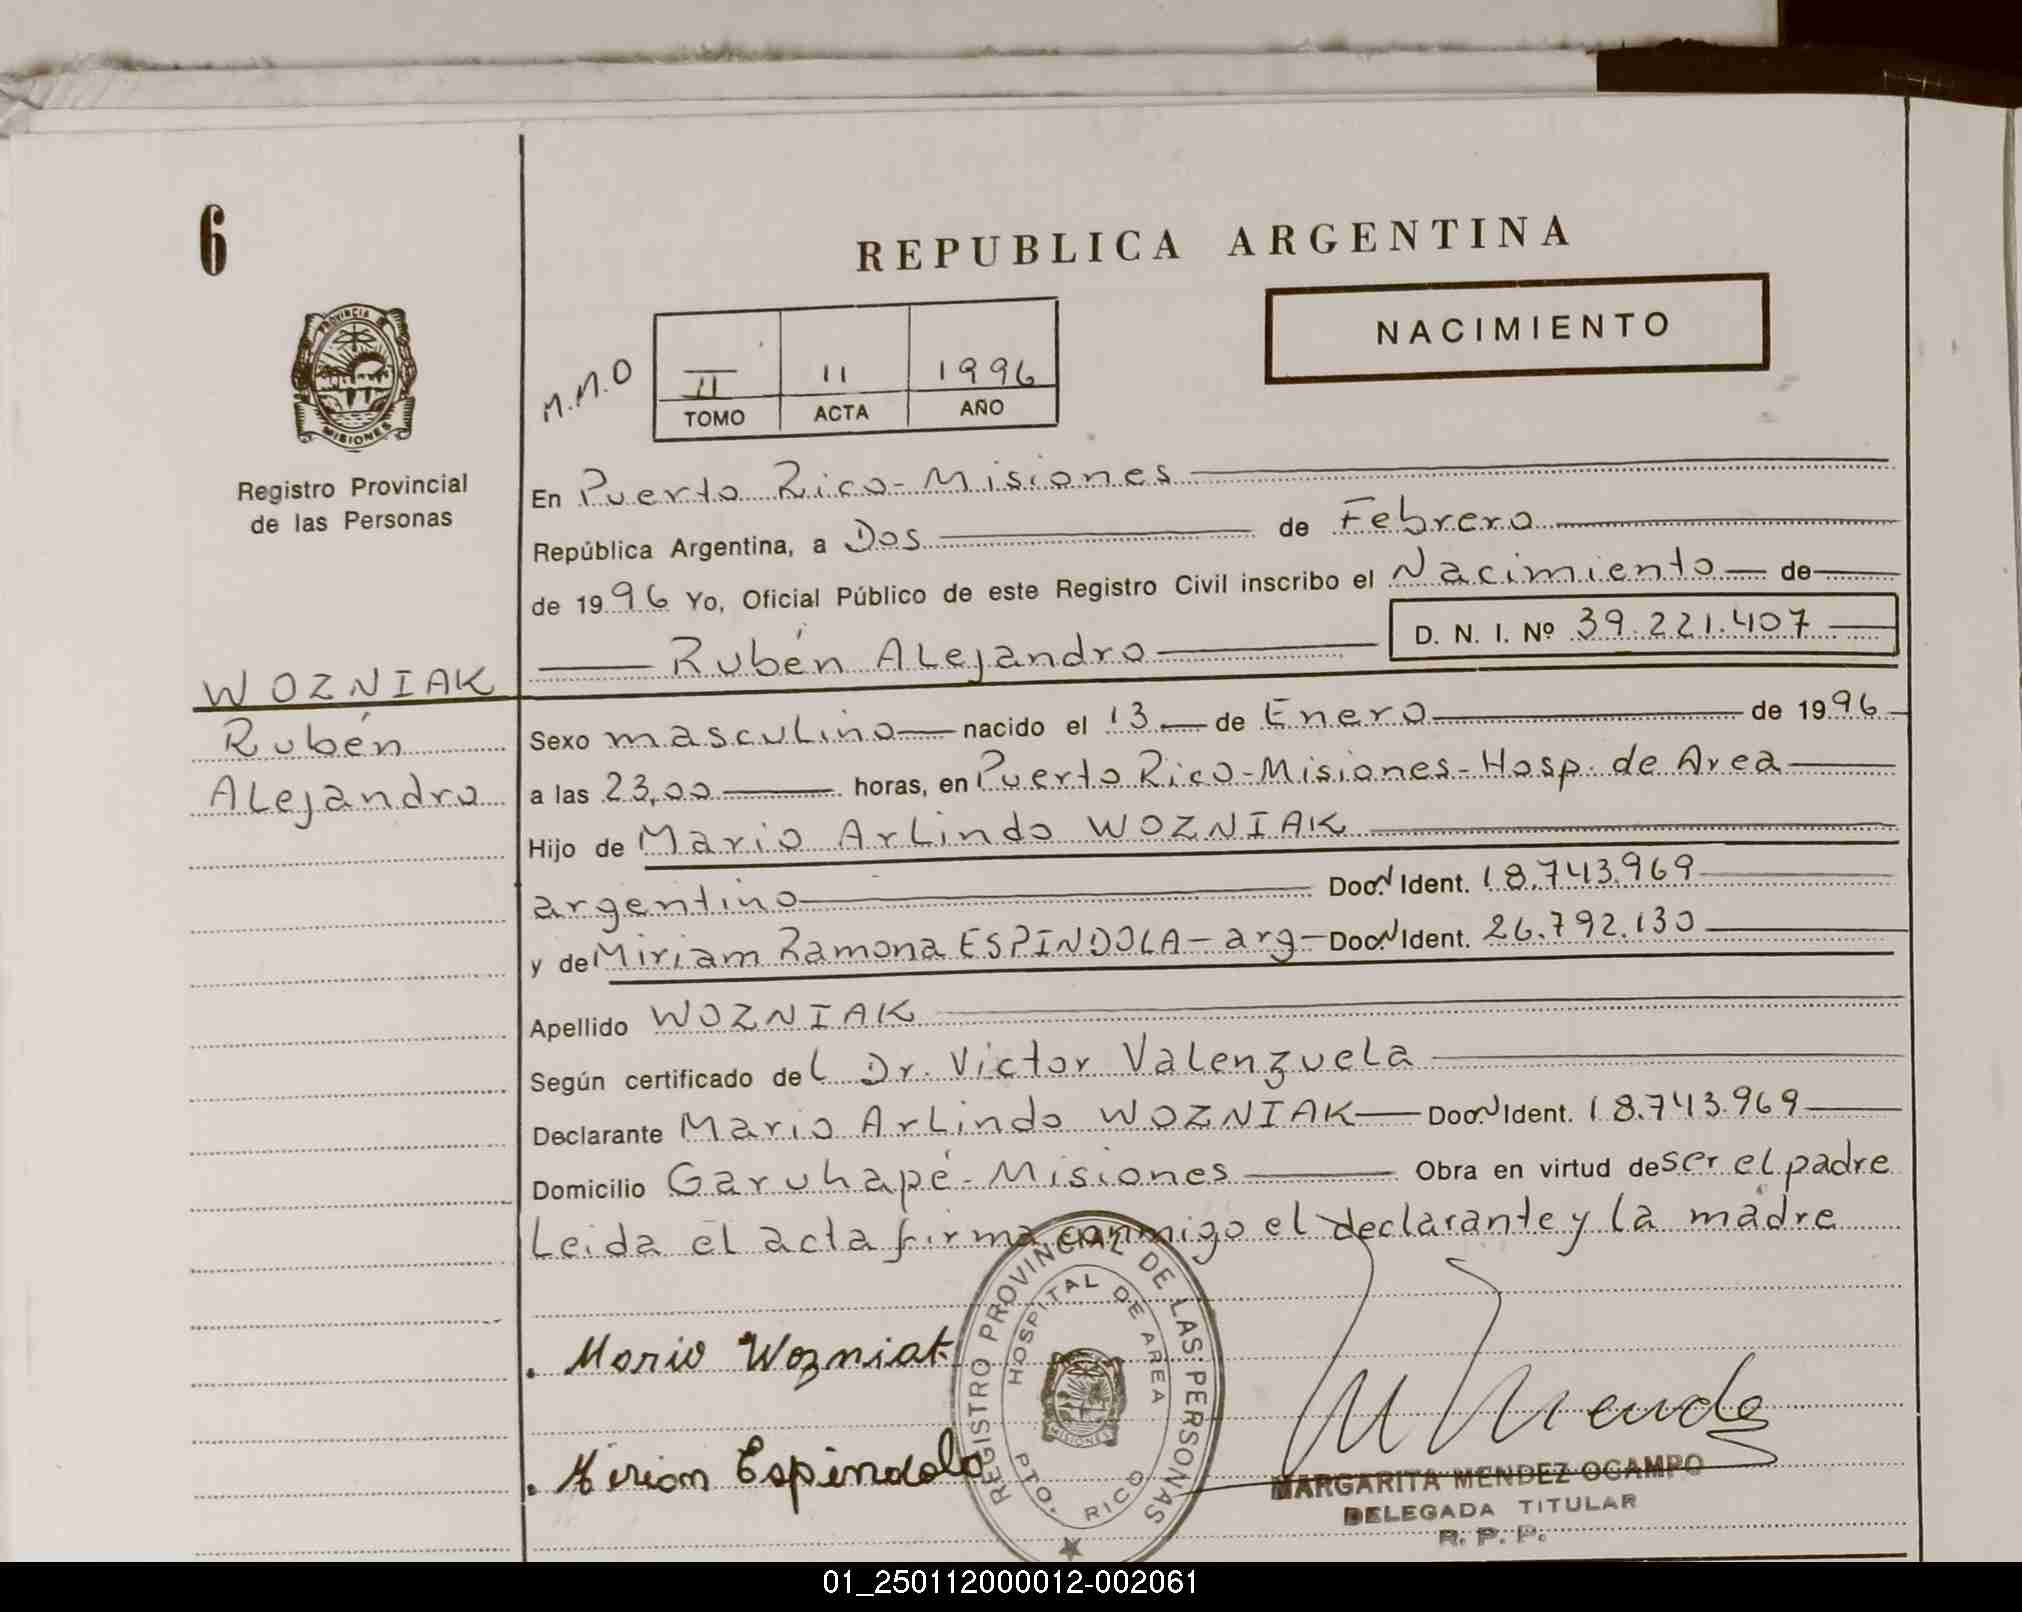 6
REPUBLICA ARGENTINA
NACIMIENTO
M.M.O
II 11 1996
TOMO ACTA AÑO
PROVINCIA DE
MISIONES
Registro Provincial
de las Personas
En Puerto Rico - Misiones
República Argentina, a Dos de Febrero
de 1996 Yo, Oficial Público de este Registro Civil inscribo el Nacimiento de
Rubén Alejandro D. N. I. Nº 39.221.407
WOZNIAK
Rubén
Alejandro
Sexo masculino nacido el 13 de Enero de 1996
a las 23,00 horas, en Puerto Rico - Misiones - Hosp. de Area
Hijo de Mario Arlindo WOZNIAK
argentino Doc. N Ident. 18.743.969
y de Miriam Ramona ESPINDOLA - arg - Doc. N Ident. 26.792.130
Apellido WOZNIAK
Según certificado del Dr. Victor Valenzuela
Declarante Mario Arlindo WOZNIAK Doc. N Ident. 18.743.969
Domicilio Garuhapé - Misiones Obra en virtud de ser el padre
Leida el acta firma conmigo el declarante y la madre
Mario Wozniak
Miriam Espindola
REGISTRO PROVINCIAL DE LAS PERSONAS
HOSPITAL DE AREA
PTO. RICO
MISIONES
M Mendez
MARGARITA MENDEZ OCAMPO
DELEGADA TITULAR
R. P. P.
01_250112000012-002061